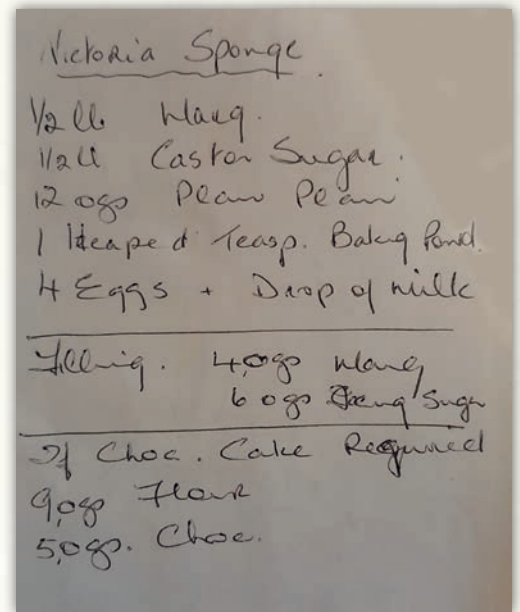 Victoria Sponge.
1/2 lb Marg.
1/2 lb Castor Sugar.
12 ozs Plain Plain
1 Heaped Teasp. Baking Powd.
4 Eggs + Drop of milk
Filling. 4 ozs Marg
6 ozs Icing Sugar
If Choc. Cake Required
9 ozs Flour
5 ozs. Choc.